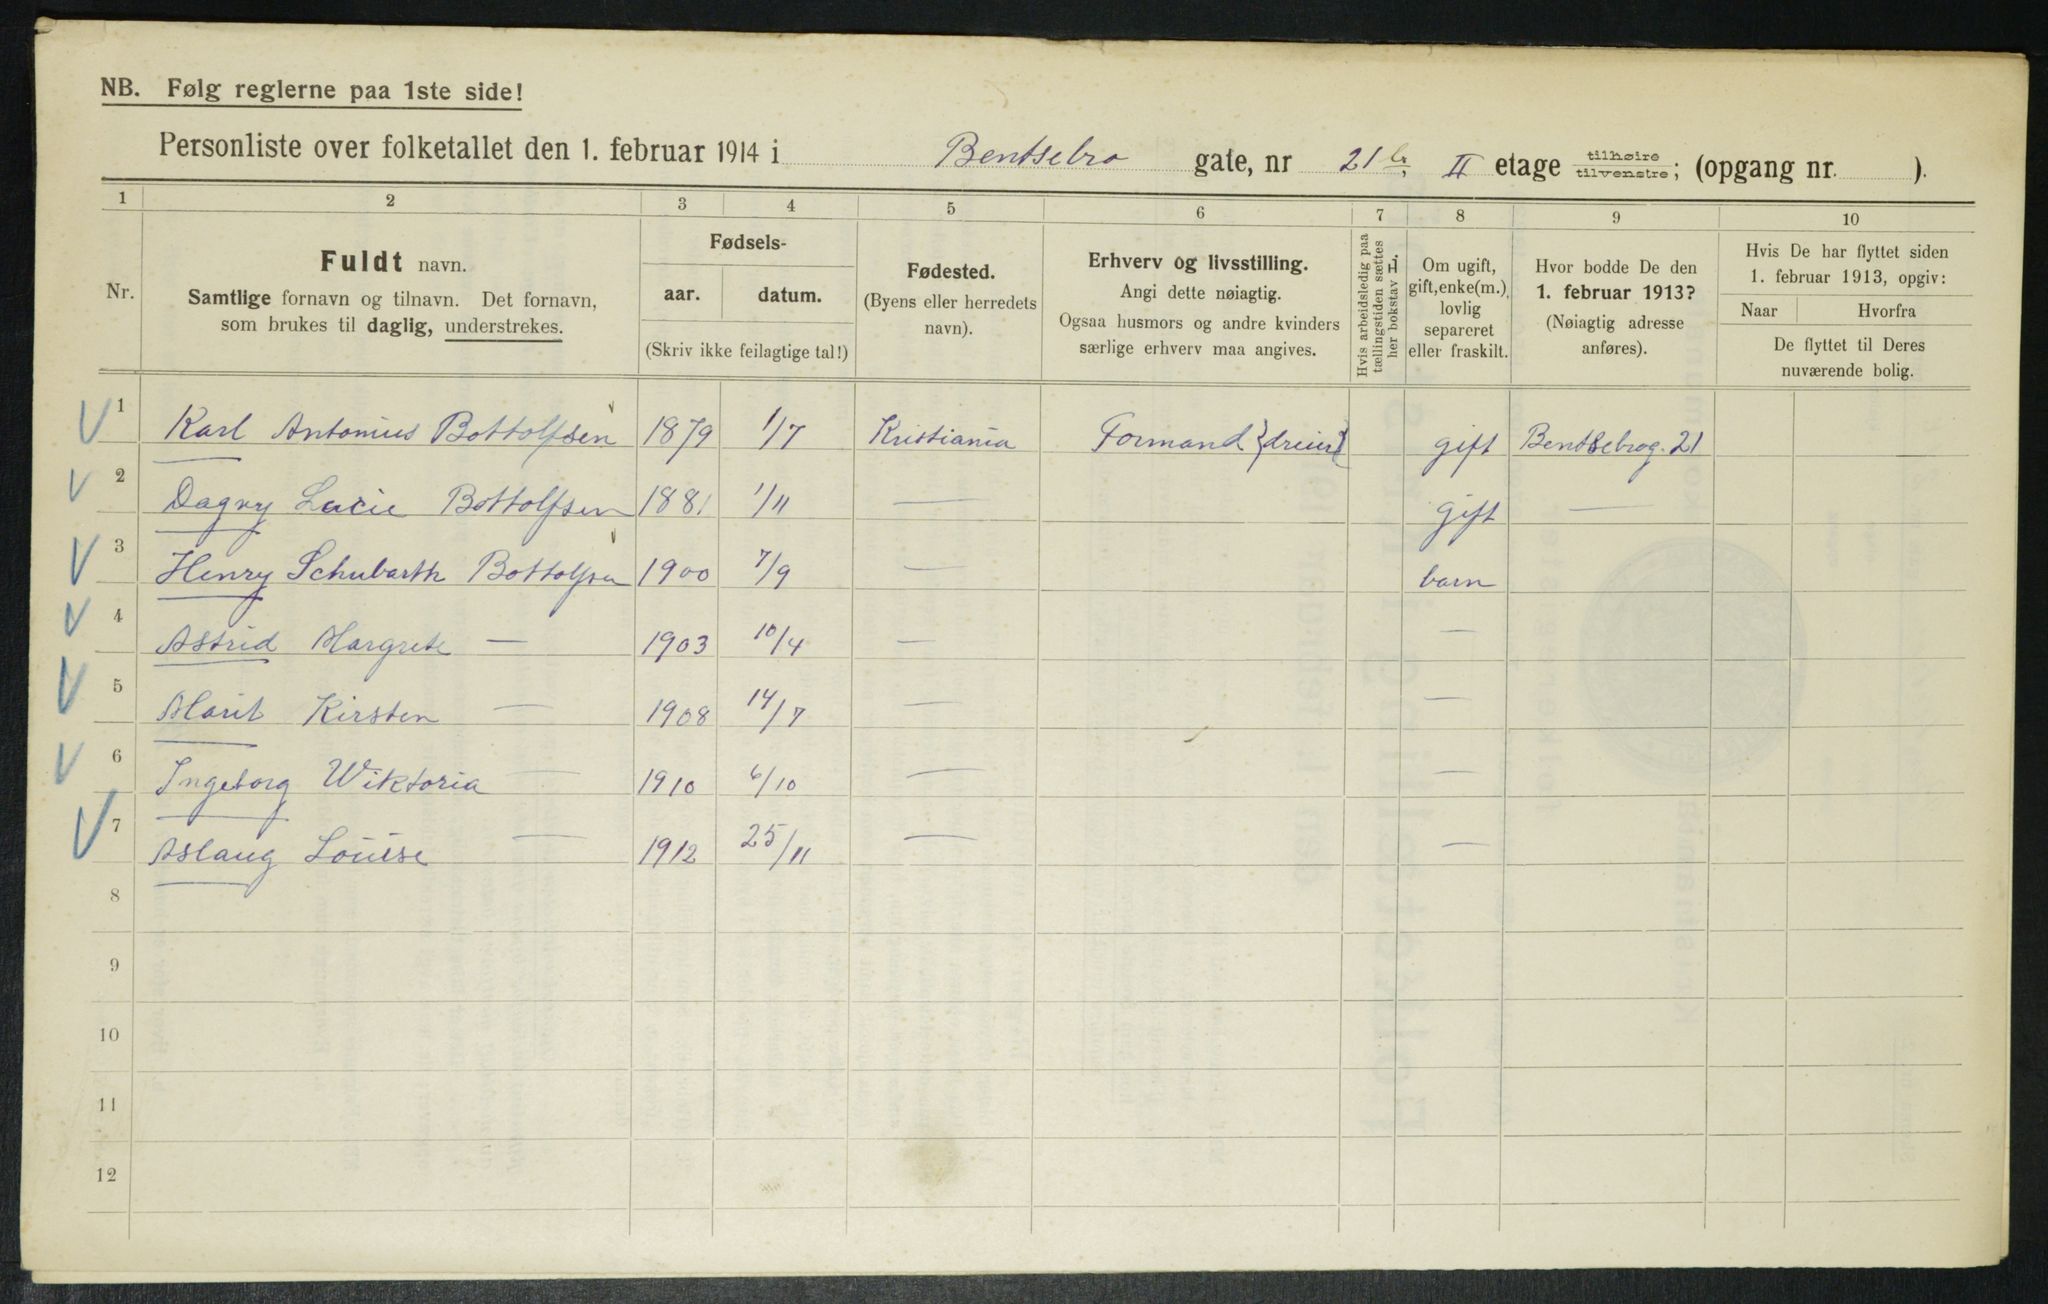 NB. Følg reglerne paa 1ste side!
Personliste over folketallet den 1. februar 1914 i Bentsebro gate, nr 21 b, II etage tilhøire / tilvenstre; (opgang nr. ).
1 2 3 4 5 6 7 8 9 10
Nr.
Fuldt navn.
Samtlige fornavn og tilnavn. Det fornavn,
som brukes til daglig, understrekes.
Fødsels-
aar. datum.
(Skriv ikke feilagtige tal!)
Fødested.
(Byens eller herredets
navn).
Erhverv og livsstilling.
Angi dette nøiagtig.
Ogsaa husmors og andre kvinders
særlige erhverv maa angives.
Hvis arbeidsledig paa
tællingstiden sættes
her bokstav L.
Om ugift,
gift, enke(m.),
lovlig
separeret
eller fraskilt.
Hvor bodde De den
1. februar 1913?
(Nøiagtig adresse
anføres).
Hvis De har flyttet siden
1. februar 1913, opgiv:
Naar Hvorfra
De flyttet til Deres
nuværende bolig.
1 Karl Antonius Bottolfsen 1879 1/7 Kristiania Formand {dreier} gift Bentsebrog. 21
2 Dagny Lucie Bottolfsen 1881 1/11 — gift —
3 Henry Schubarth Bottolfsen 1900 7/9 — barn
4 Astrid Margrete — 1903 10/4 — —
5 Marit Kirsten — 1908 14/7 — —
6 Ingeborg Wiktoria — 1910 6/10 — —
7 Aslaug Louise — 1912 25/11 — —
8
9
10
11
12